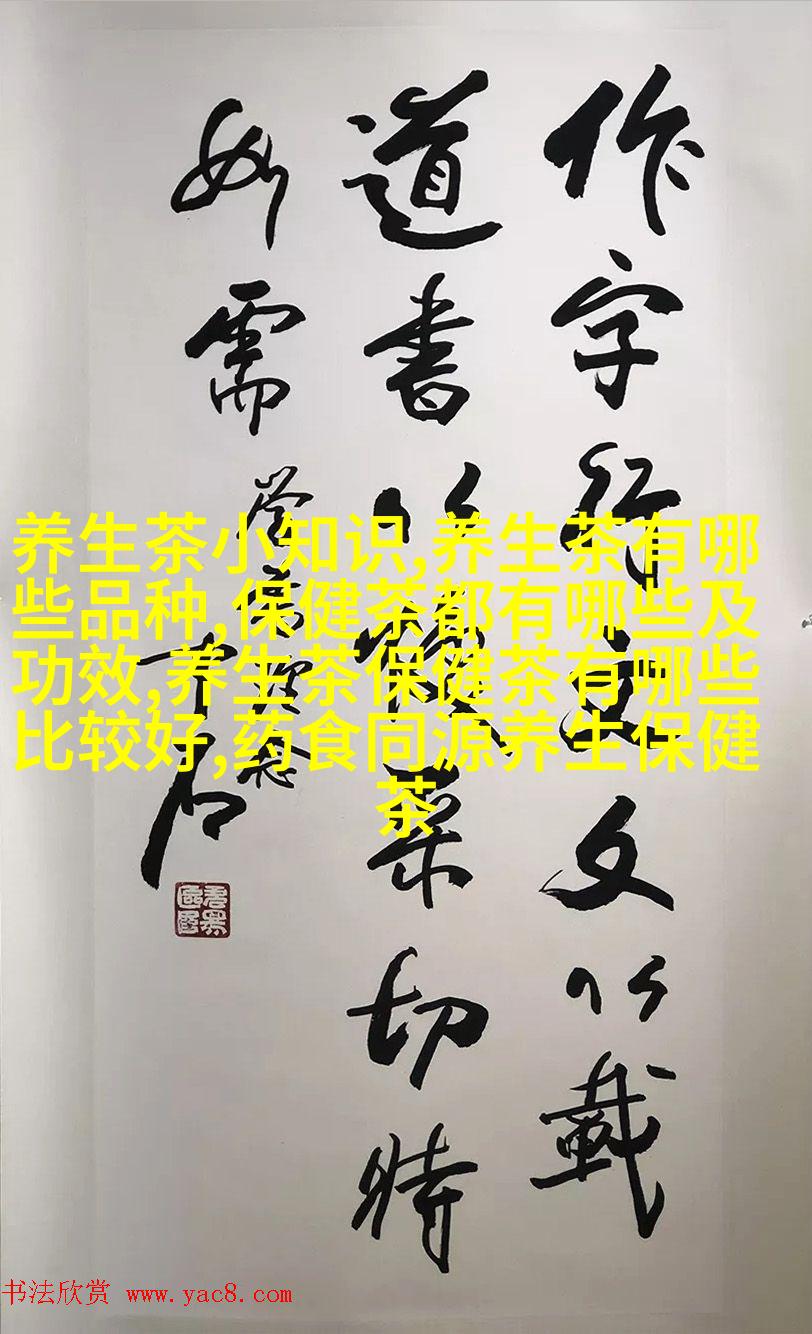 作字行文文以載
道書以焕采切時
如需
养生茶小知识,养生茶有哪
些品种,保健茶都有哪些及
功效,养生茶保健茶有哪些
比较好,药食同源养生保健
茶
书法欣赏 www.yac8.com